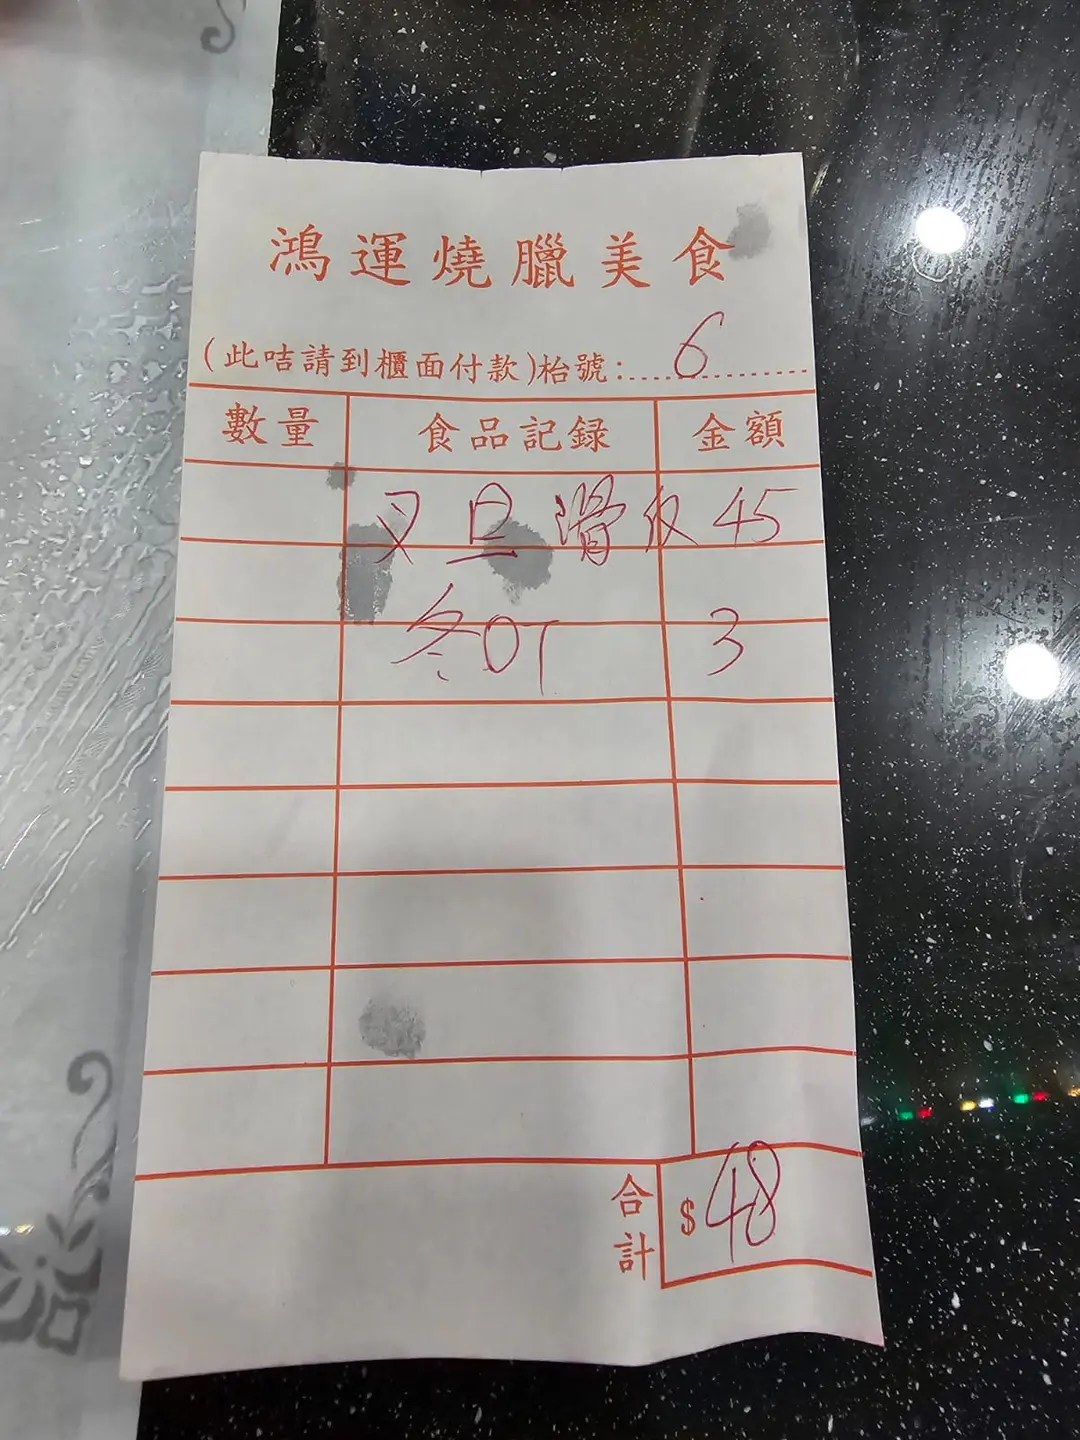 鴻運燒臘美食
(此咭請到櫃面付款)枱號: 6
數量 食品記録 金額
叉旦滑反 45
冬OT 3
合計 $48